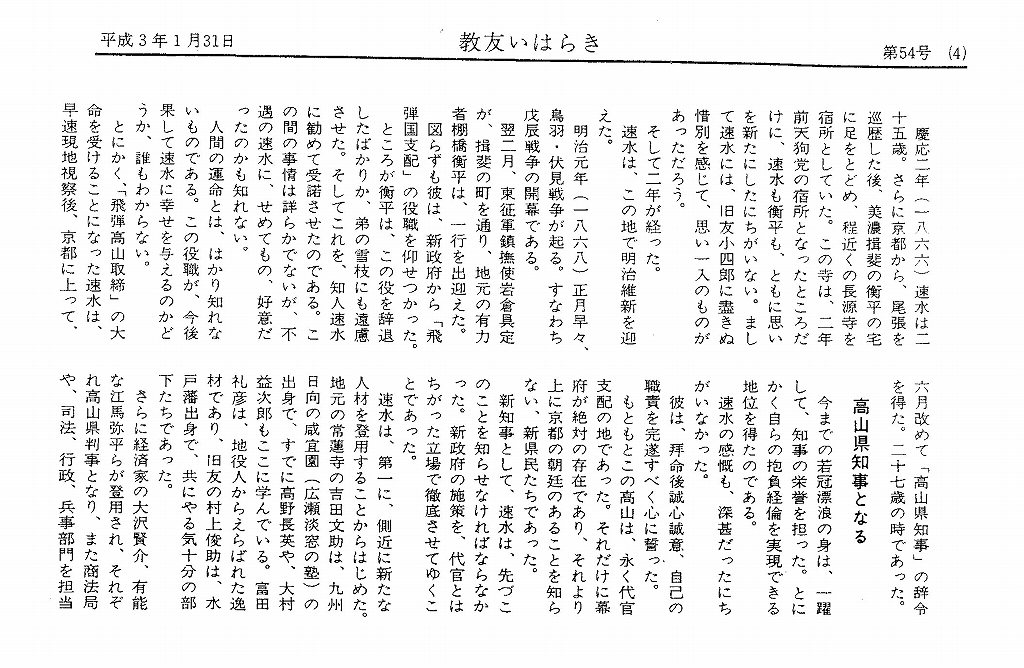 平成3年1月31日
教友いはらき
第54号 (4)
慶応二年（一八六六）速水は二
十五歳。さらに京都から、尾張を
巡歴した後、美濃揖斐の衡平の宅
に足をとどめ、程近くの長源寺を
宿所としていた。この寺は、二年
前天狗党の宿所となったところだ
けに、速水も衡平も、ともに思い
を新たにしたにちがいない。まし
て速水には、旧友小四郎に盡きぬ
惜別を感じて、思い一入のものが
あっただろう。
そして二年が経った。
速水は、この地で明治維新を迎
えた。
明治元年（一八六八）正月早々、
鳥羽・伏見戦争が起る。すなわち
戊辰戦争の開幕である。
翌二月、東征軍鎮撫使岩倉具定
が、揖斐の町を通り、地元の有力
者棚橋衡平は、一行を出迎えた。
図らずも彼は、新政府から「飛
弾国支配」の役職を仰せつかった。
ところが衡平は、この役を辞退
したばかりか、弟の雪枝にも遠慮
させた。そしてこれを、知人速水
に勧めて受諾させたのである。こ
の間の事情は詳らかでないが、不
遇の速水に、せめてもの、好意だ
ったのかも知れない。
人間の運命とは、はかり知れな
いものである。この役職が、今後
果して速水に幸せを与えるのかど
うか、誰もわからない。
とにかく「飛弾高山取締」の大
命を受けることになった速水は、
早速現地視察後、京都に上って、
六月改めて「高山県知事」の辞令
を得た。二十七歳の時であった。
高山県知事となる
今までの若冠漂浪の身は、一躍
して、知事の栄誉を担った。とに
かく自らの抱負経倫を実現できる
地位を得たのである。
速水の感慨も、深甚だったにち
がいなかった。
彼は、拝命後誠心誠意、自己の
職責を完遂すべく心に誓った。
もともとこの高山は、永く代官
支配の地であった。それだけに幕
府が絶対の存在であり、それより
上に京都の朝廷のあることを知ら
ない、新県民たちであった。
新知事として、速水は、先づこ
のことを知らせなければならなか
った。新政府の施策を、代官とは
ちがった立場で徹底させてゆくこ
とであった。
速水は、第一に、側近に新たな
人材を登用することからはじめた。
地元の常蓮寺の吉田文助は、九州
日向の咸宜園（広瀬淡窓の塾）の
出身で、すでに高野長英や、大村
益次郎もここに学んでいる。富田
礼彦は、地役人からえらばれた逸
材であり、旧友の村上俊助は、水
戸藩出身で、共にやる気十分の部
下たちであった。
さらに経済家の大沢賢介、有能
な江馬弥平らが登用され、それぞ
れ高山県判事となり、また商法局
や、司法、行政、兵事部門を担当